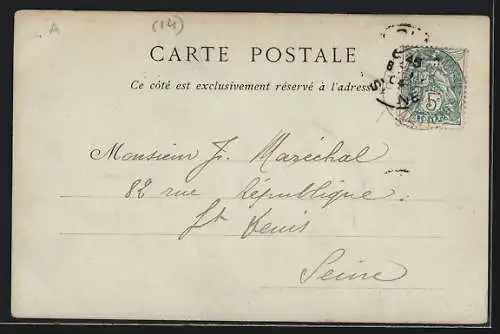 A
(14)
CARTE POSTALE
Ce côté est exclusivement réservé à l'adresse
5
Monsieur J. Maréchal
82 rue République
St Denis
Seine